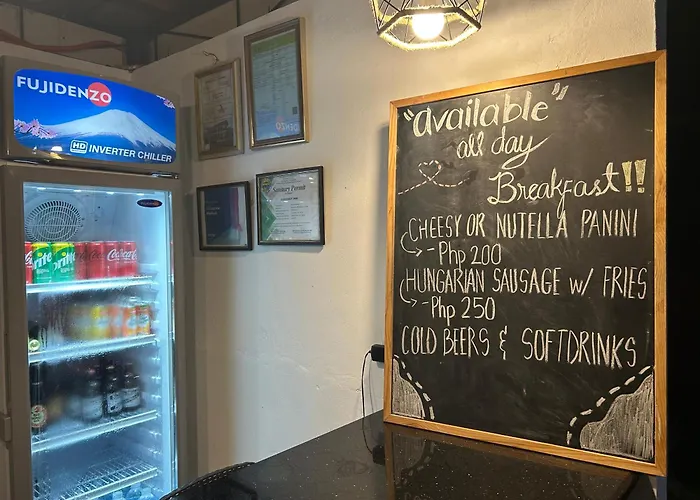 FUJIDENZO
HD INVERTER CHILLER
Sanitary Permit
"available"
all day
Breakfast!!
CHEESY OR NUTELLA PANINI
- Php 200
HUNGARIAN SAUSAGE w/ FRIES
- Php 250
COLD BEERS & SOFTDRINKS